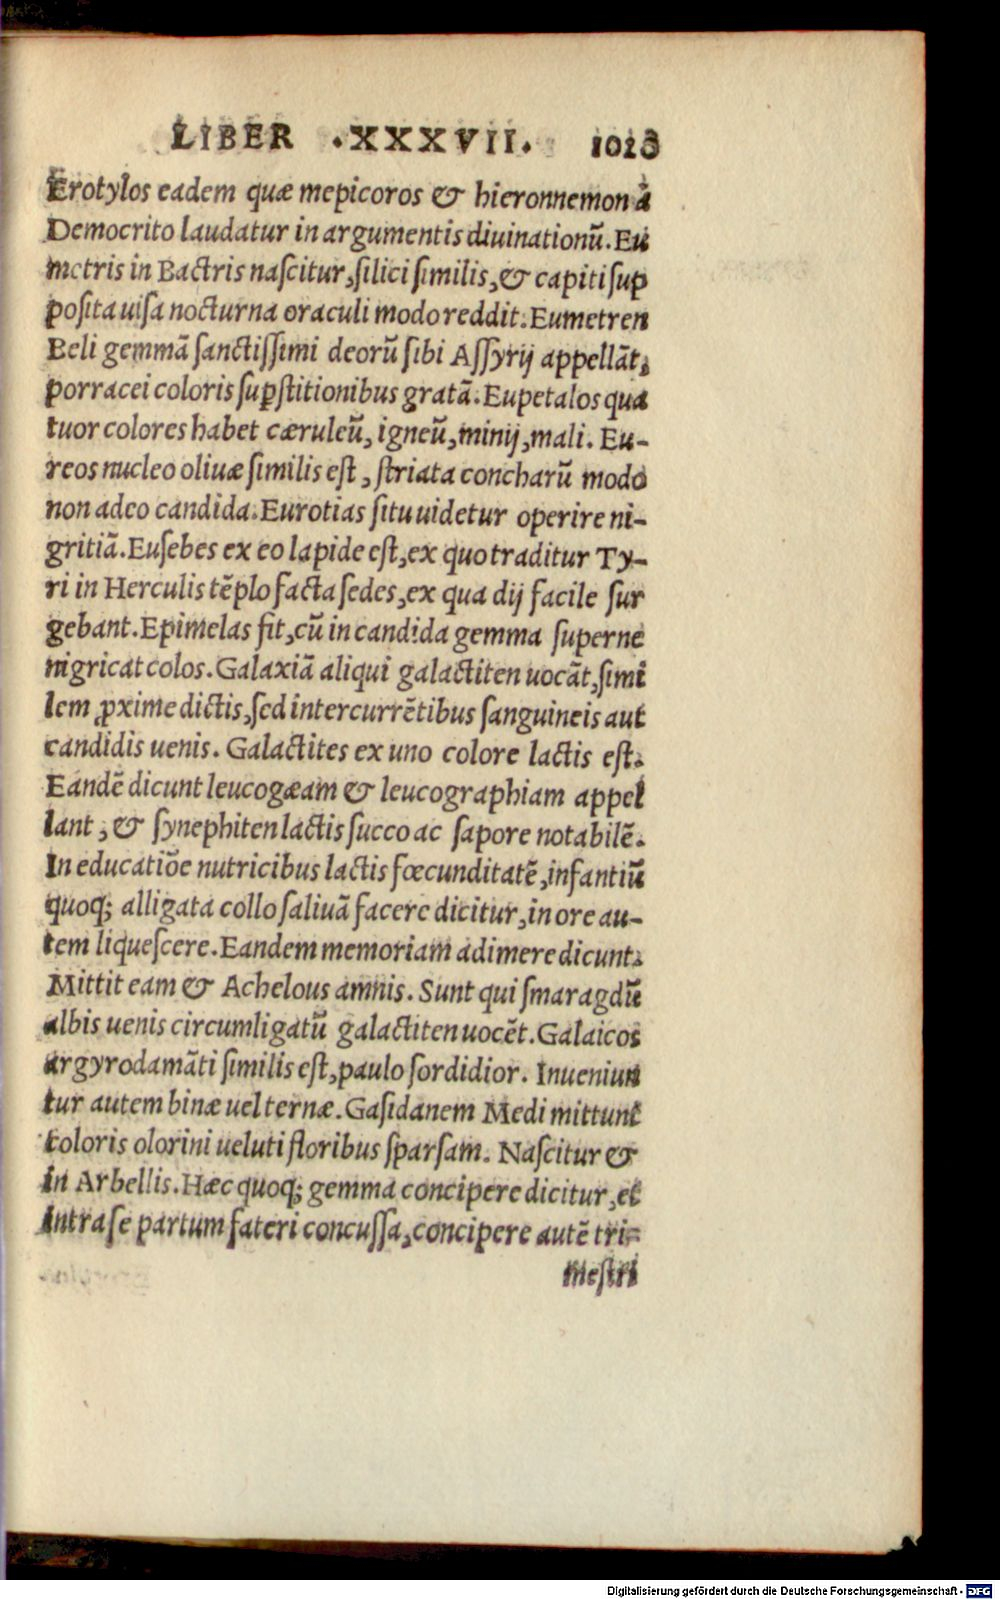 LIBER .XXXVII.
Erotylos eadem quæ mepicoros & hieronnemon à
Democrito laudatur in argumentis diuinationū. Eu
metris in Bactris naſcitur, ſilici ſimilis, & capiti ſup
poſita uiſa nocturna oraculi modo reddit. Eumetren
Beli gemmā ſanctiſſimi deorū ſibi Aſſyrij appellāt,
porracei coloris ſuꝑſtitionibus gratā. Eupetalos qua
tuor colores habet cæruleū, igneū, minij, mali. Eu-
reos nucleo oliuæ ſimilis eſt, ſtriata concharū modo
non adeo candida. Eurotias ſitu uidetur operire ni-
gritiā. Euſebes ex eo lapide eſt, ex quo traditur Ty-
ri in Herculis tēplo facta ſedes, ex qua dij facile ſur
gebant. Epimelas fit, cū in candida gemma ſuperne
nigricat colos. Galaxiā aliqui galactiten uocāt, ſimi
lem ꝓxime dictis, ſed intercurrētibus ſanguineis aut
candidis uenis. Galactites ex uno colore lactis eſt.
Eandē dicunt leucogæam & leucographiam appel
lant, & ſynephiten lactis ſucco ac ſapore notabilē.
In educatiōe nutricibus lactis fœcunditatē, infantiū
quoq; alligata collo ſaliuā facere dicitur, in ore au-
tem liqueſcere. Eandem memoriam adimere dicunt.
Mittit eam & Achelous amnis. Sunt qui ſmaragdū
albis uenis circumligatū galactiten uocēt. Galaicos
argyrodamāti ſimilis eſt, paulo ſordidior. Inueniun
tur autem binæ uel ternæ. Gaſidanem Medi mittunt
coloris olorini ueluti floribus ſparſam. Naſcitur &
in Arbellis. Hæc quoq; gemma concipere dicitur, et
intra ſe partum fateri concuſſa, concipere autē tri-
meſtri
Digitalisierung gefördert durch die Deutsche Forschungsgemeinschaft - DFG